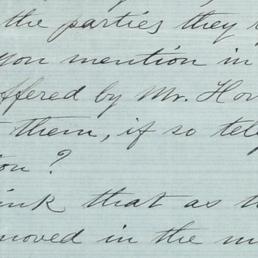 the parties they
you mention in
offered by Mr. Hov
them, if so tel
ion?
ink that as t
moved in the m